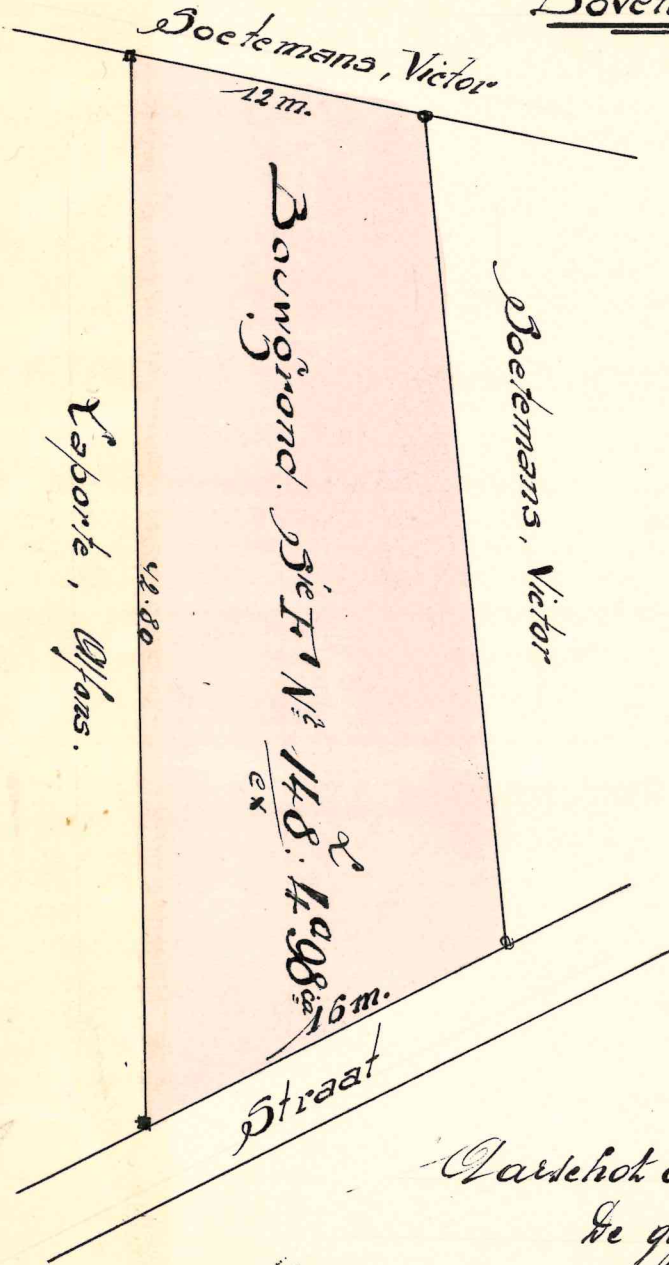 Soetemans, Victor
12 m.
Bouwgrond. Sie F Nº 148 L : 4a 98ca
ex
Soetemans, Victor
Laporte, Alfons.
42.80
16 m.
Straat
Aarschot
De